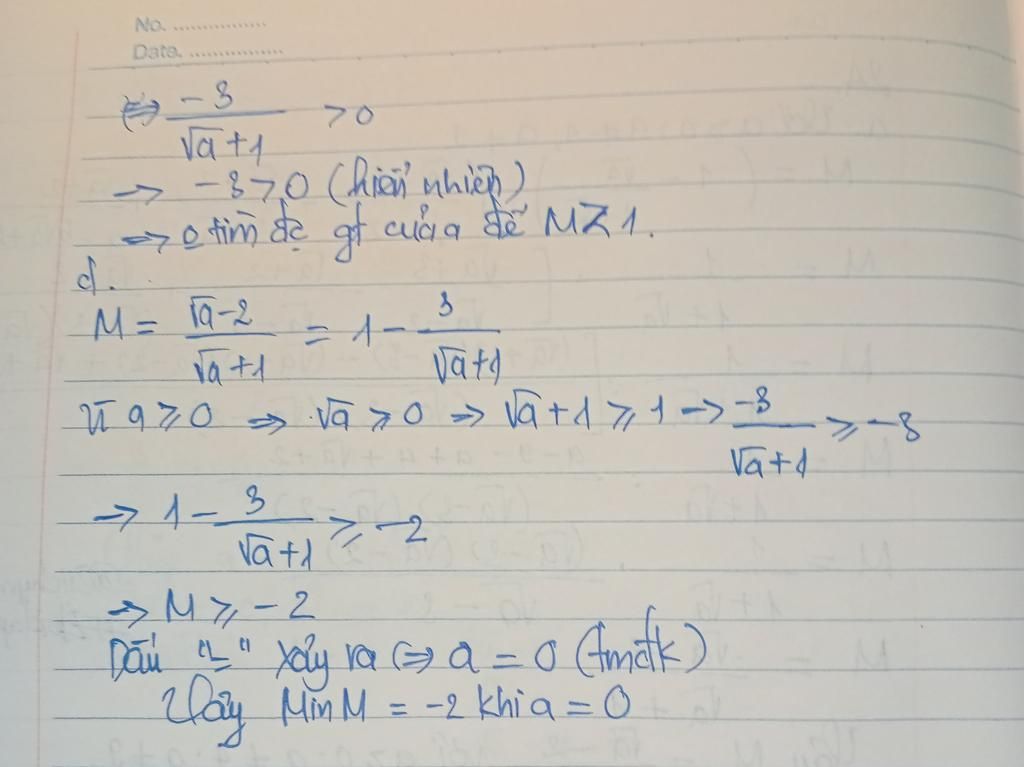 No. ................
Date. ................
⇔ -3/(√a+1) > 0
→ -3 > 0 (hiển nhiên)
→ o tìm đc gt của a để M > 1.
d.
M = (√a-2)/(√a+1) = 1 - 3/(√a+1)
Vì a ≥ 0 ⇒ √a ≥ 0 ⇒ √a+1 ≥ 1 → -3/(√a+1) ≥ -3
→ 1 - 3/(√a+1) ≥ -2
→ M ≥ -2
Dấu "=" xảy ra ⇔ a = 0 (tmđk)
Vậy Min M = -2 khi a = 0